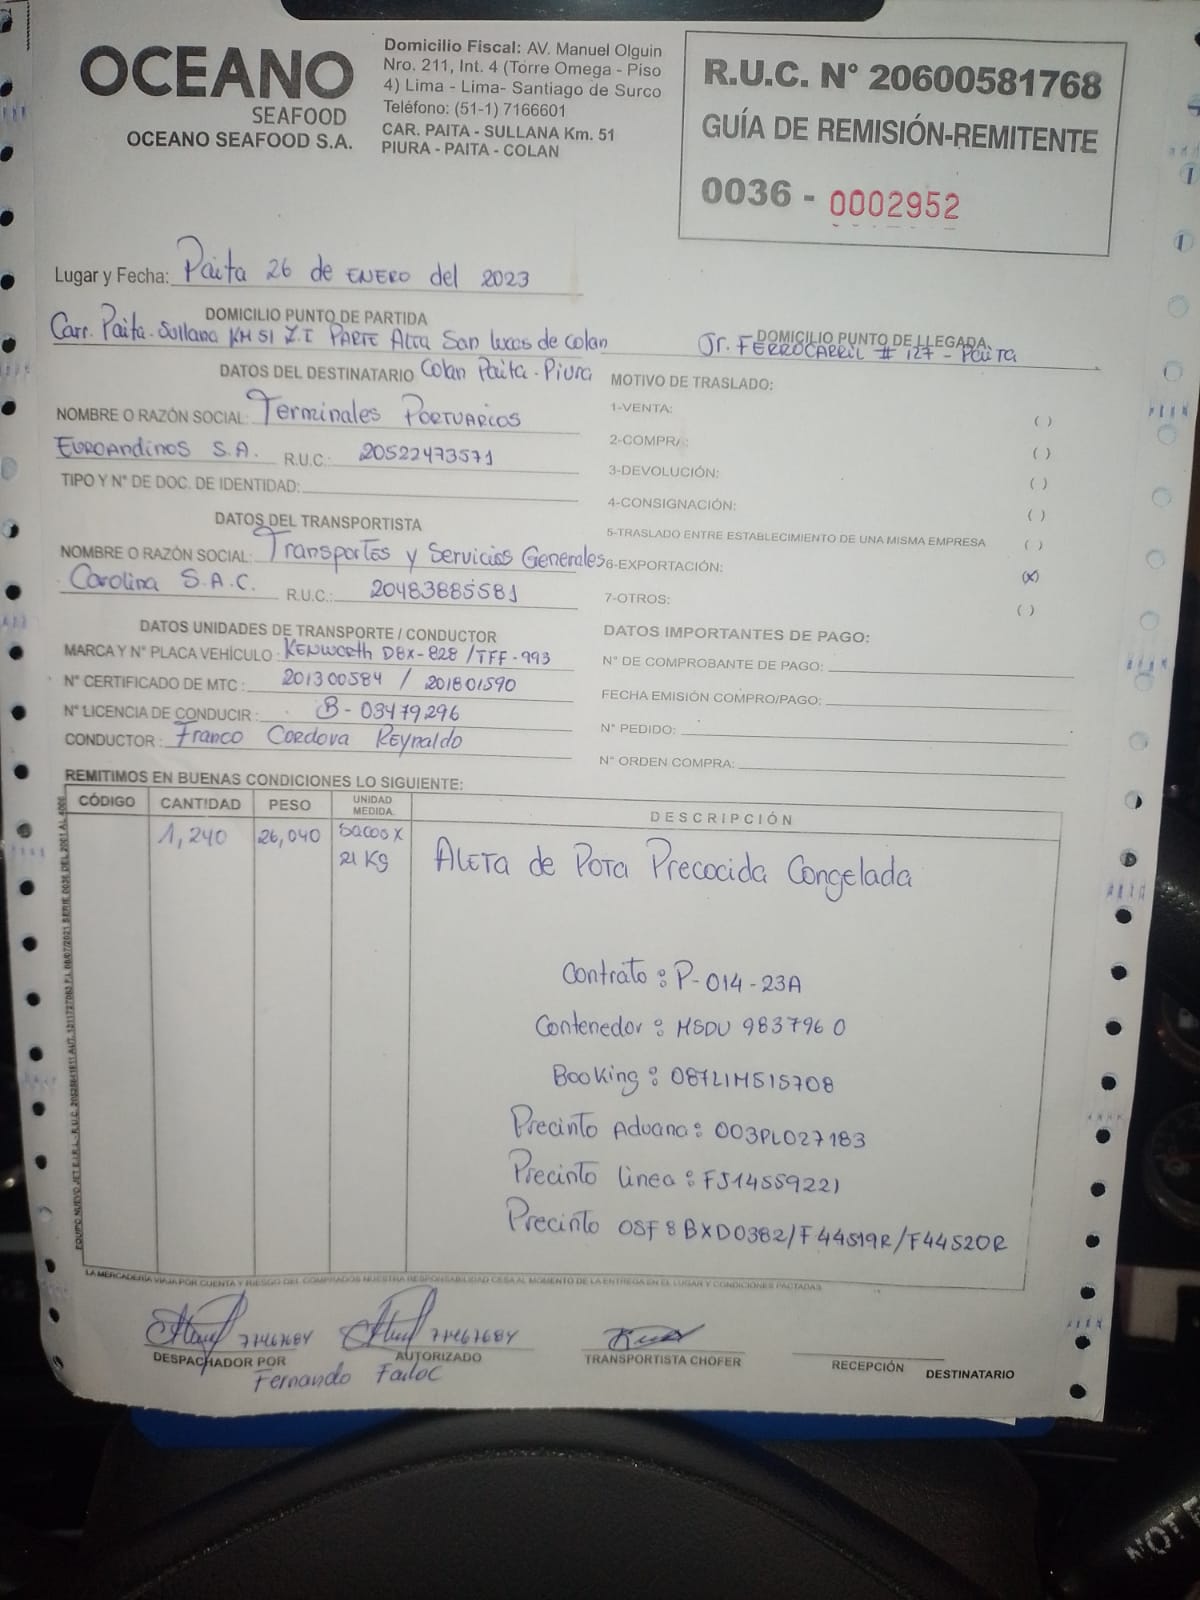 OCEANO
SEAFOOD
OCEANO SEAFOOD S.A.
Domicilio Fiscal: AV. Manuel Olguin
Nro. 211, Int. 4 (Torre Omega - Piso
4) Lima - Lima- Santiago de Surco
Teléfono: (51-1) 7166601
CAR. PAITA - SULLANA Km. 51
PIURA - PAITA - COLAN
R.U.C. N° 20600581768
GUÍA DE REMISIÓN-REMITENTE
0036 - 0002952
Lugar y Fecha: Paita 26 de ENERO del 2023
DOMICILIO PUNTO DE PARTIDA
Carr. Paita-Sullana KM 51 Z.I PARTE Alta San Lucas de Colan
DOMICILIO PUNTO DE LLEGADA
Jr. FERROCARRIL # 127 - Paita
DATOS DEL DESTINATARIO Colan Paita-Piura
NOMBRE O RAZÓN SOCIAL: Terminales PORTUARIOS
EUROAndinos S.A. R.U.C: 20522473571
TIPO Y N° DE DOC. DE IDENTIDAD:
DATOS DEL TRANSPORTISTA
NOMBRE O RAZÓN SOCIAL: Transportes y Servicios Generales
Carolina S.A.C. R.U.C.: 20483885581
DATOS UNIDADES DE TRANSPORTE / CONDUCTOR
MARCA Y N° PLACA VEHÍCULO: KENWORTH D8X-828 / TFF-993
N° CERTIFICADO DE MTC: 201300584 / 201801590
N° LICENCIA DE CONDUCIR: B-03479296
CONDUCTOR: Franco Cordova Reynaldo
MOTIVO DE TRASLADO:
1-VENTA: ( )
2-COMPRA: ( )
3-DEVOLUCIÓN: ( )
4-CONSIGNACIÓN: ( )
5-TRASLADO ENTRE ESTABLECIMIENTO DE UNA MISMA EMPRESA ( )
6-EXPORTACIÓN: (X)
7-OTROS: ( )
DATOS IMPORTANTES DE PAGO:
N° DE COMPROBANTE DE PAGO:
FECHA EMISIÓN COMPRO/PAGO:
N° PEDIDO:
N° ORDEN COMPRA:
REMITIMOS EN BUENAS CONDICIONES LO SIGUIENTE:
CÓDIGO CANTIDAD PESO UNIDAD MEDIDA. DESCRIPCIÓN
1,240 26,040 Sacos x
21 Kg
ALETA de POTA Precocida Congelada
Contrato: P-014-23A
Contenedor: MSDU 983796 0
Booking: 087LIM515708
Precinto Aduana: 003PL027183
Precinto linea: FJ14559221
Precinto OSF 8BXD0382/F44519R/F44520R
LA MERCADERÍA VIAJA POR CUENTA Y RIESGO DEL COMPRADOS NUESTRA RESPONSABILIDAD CESA AL MOMENTO DE LA ENTREGA EN EL LUGAR Y CONDICIONES PACTADAS
DESPACHADOR POR
AUTORIZADO
TRANSPORTISTA CHOFER
RECEPCIÓN DESTINATARIO
Fernando